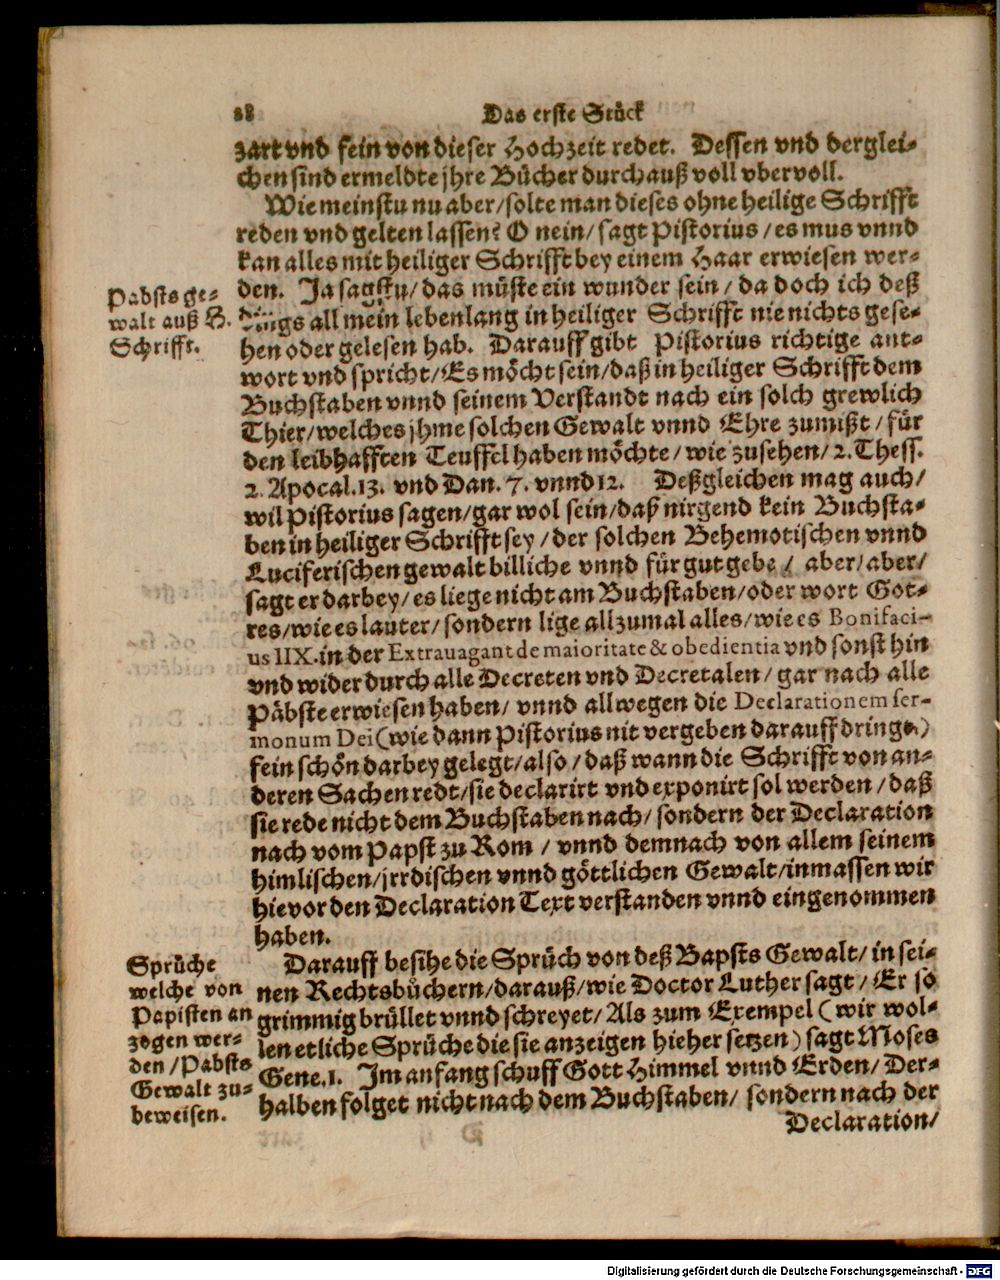 88
Das erste Stück
zart vnd fein von dieser Hochzeit redet. Dessen vnd derglei-
chen sind ermeldte jhre Bücher durchauß voll vbervoll.
Wie meinstu nu aber/ solte man dieses ohne heilige Schrifft
reden vnd gelten lassen? O nein/ sagt Pistorius/ es mus vnnd
kan alles mit heiliger Schrifft bey einem Haar erwiesen wer-
den. Ja sagstu/ das müste ein wunder sein/ da doch ich deß
dings all mein lebenlang in heiliger Schrifft nie nichts gese-
hen oder gelesen hab. Darauff gibt Pistorius richtige ant-
wort vnd spricht/ Es möcht sein/ daß in heiliger Schrifft dem
Buchstaben vnnd seinem Verstandt nach ein solch grewlich
Thier/ welches jhme solchen Gewalt vnnd Ehre zumißt/ für
den leibhafften Teuffel haben möchte/ wie zusehen/ 2. Thess.
2. Apocal. 13. vnd Dan. 7. vnnd 12. Deßgleichen mag auch/
wil Pistorius sagen/ gar wol sein/ daß nirgend kein Buchsta-
ben in heiliger Schrifft sey/ der solchen Behemotischen vnnd
Luciferischen gewalt billiche vnnd für gut gebe/ aber/ aber/
sagt er darbey/ es liege nicht am Buchstaben/ oder wort Got-
tes/ wie es lauter/ sondern lige allzumal alles/ wie es Bonifaci-
us IIX. in der Extrauagant de maioritate & obedientia vnd sonst hin
vnd wider durch alle Decreten vnd Decretalen/ gar nach alle
Päbste erwiesen haben/ vnnd allwegen die Declarationem ser-
monum Dei (wie dann Pistorius nit vergeben darauff dringt)
fein schön darbey gelegt/ also/ daß wann die Schrifft von an-
deren Sachen redt/ sie declarirt vnd exponirt sol werden/ daß
sie rede nicht dem Buchstaben nach/ sondern der Declaration
nach vom Papst zu Rom/ vnnd demnach von allem seinem
himlischen/ jrrdischen vnnd göttlichen Gewalt/ inmassen wir
hievor den Declaration Text verstanden vnnd eingenommen
haben.
Pabsts ge-
walt auß H.
Schrifft.
Darauff besihe die Sprüch von deß Bapsts Gewalt/ in sei-
nen Rechtsbüchern/ darauß/ wie Doctor Luther sagt/ Er so
grimmig brüllet vnnd schreyet/ Als zum Exempel (wir wol-
len etliche Sprüche die sie anzeigen hieher setzen) sagt Moses
Gene. 1. Im anfang schuff Gott Himmel vnnd Erden/ Der-
halben folget nicht nach dem Buchstaben/ sondern nach der
Declaration/
Sprüche
welche von
Papisten an
zogen wer-
den/ Pabsts
Gewalt zu-
beweisen.
Digitalisierung gefördert durch die Deutsche Forschungsgemeinschaft - DFG